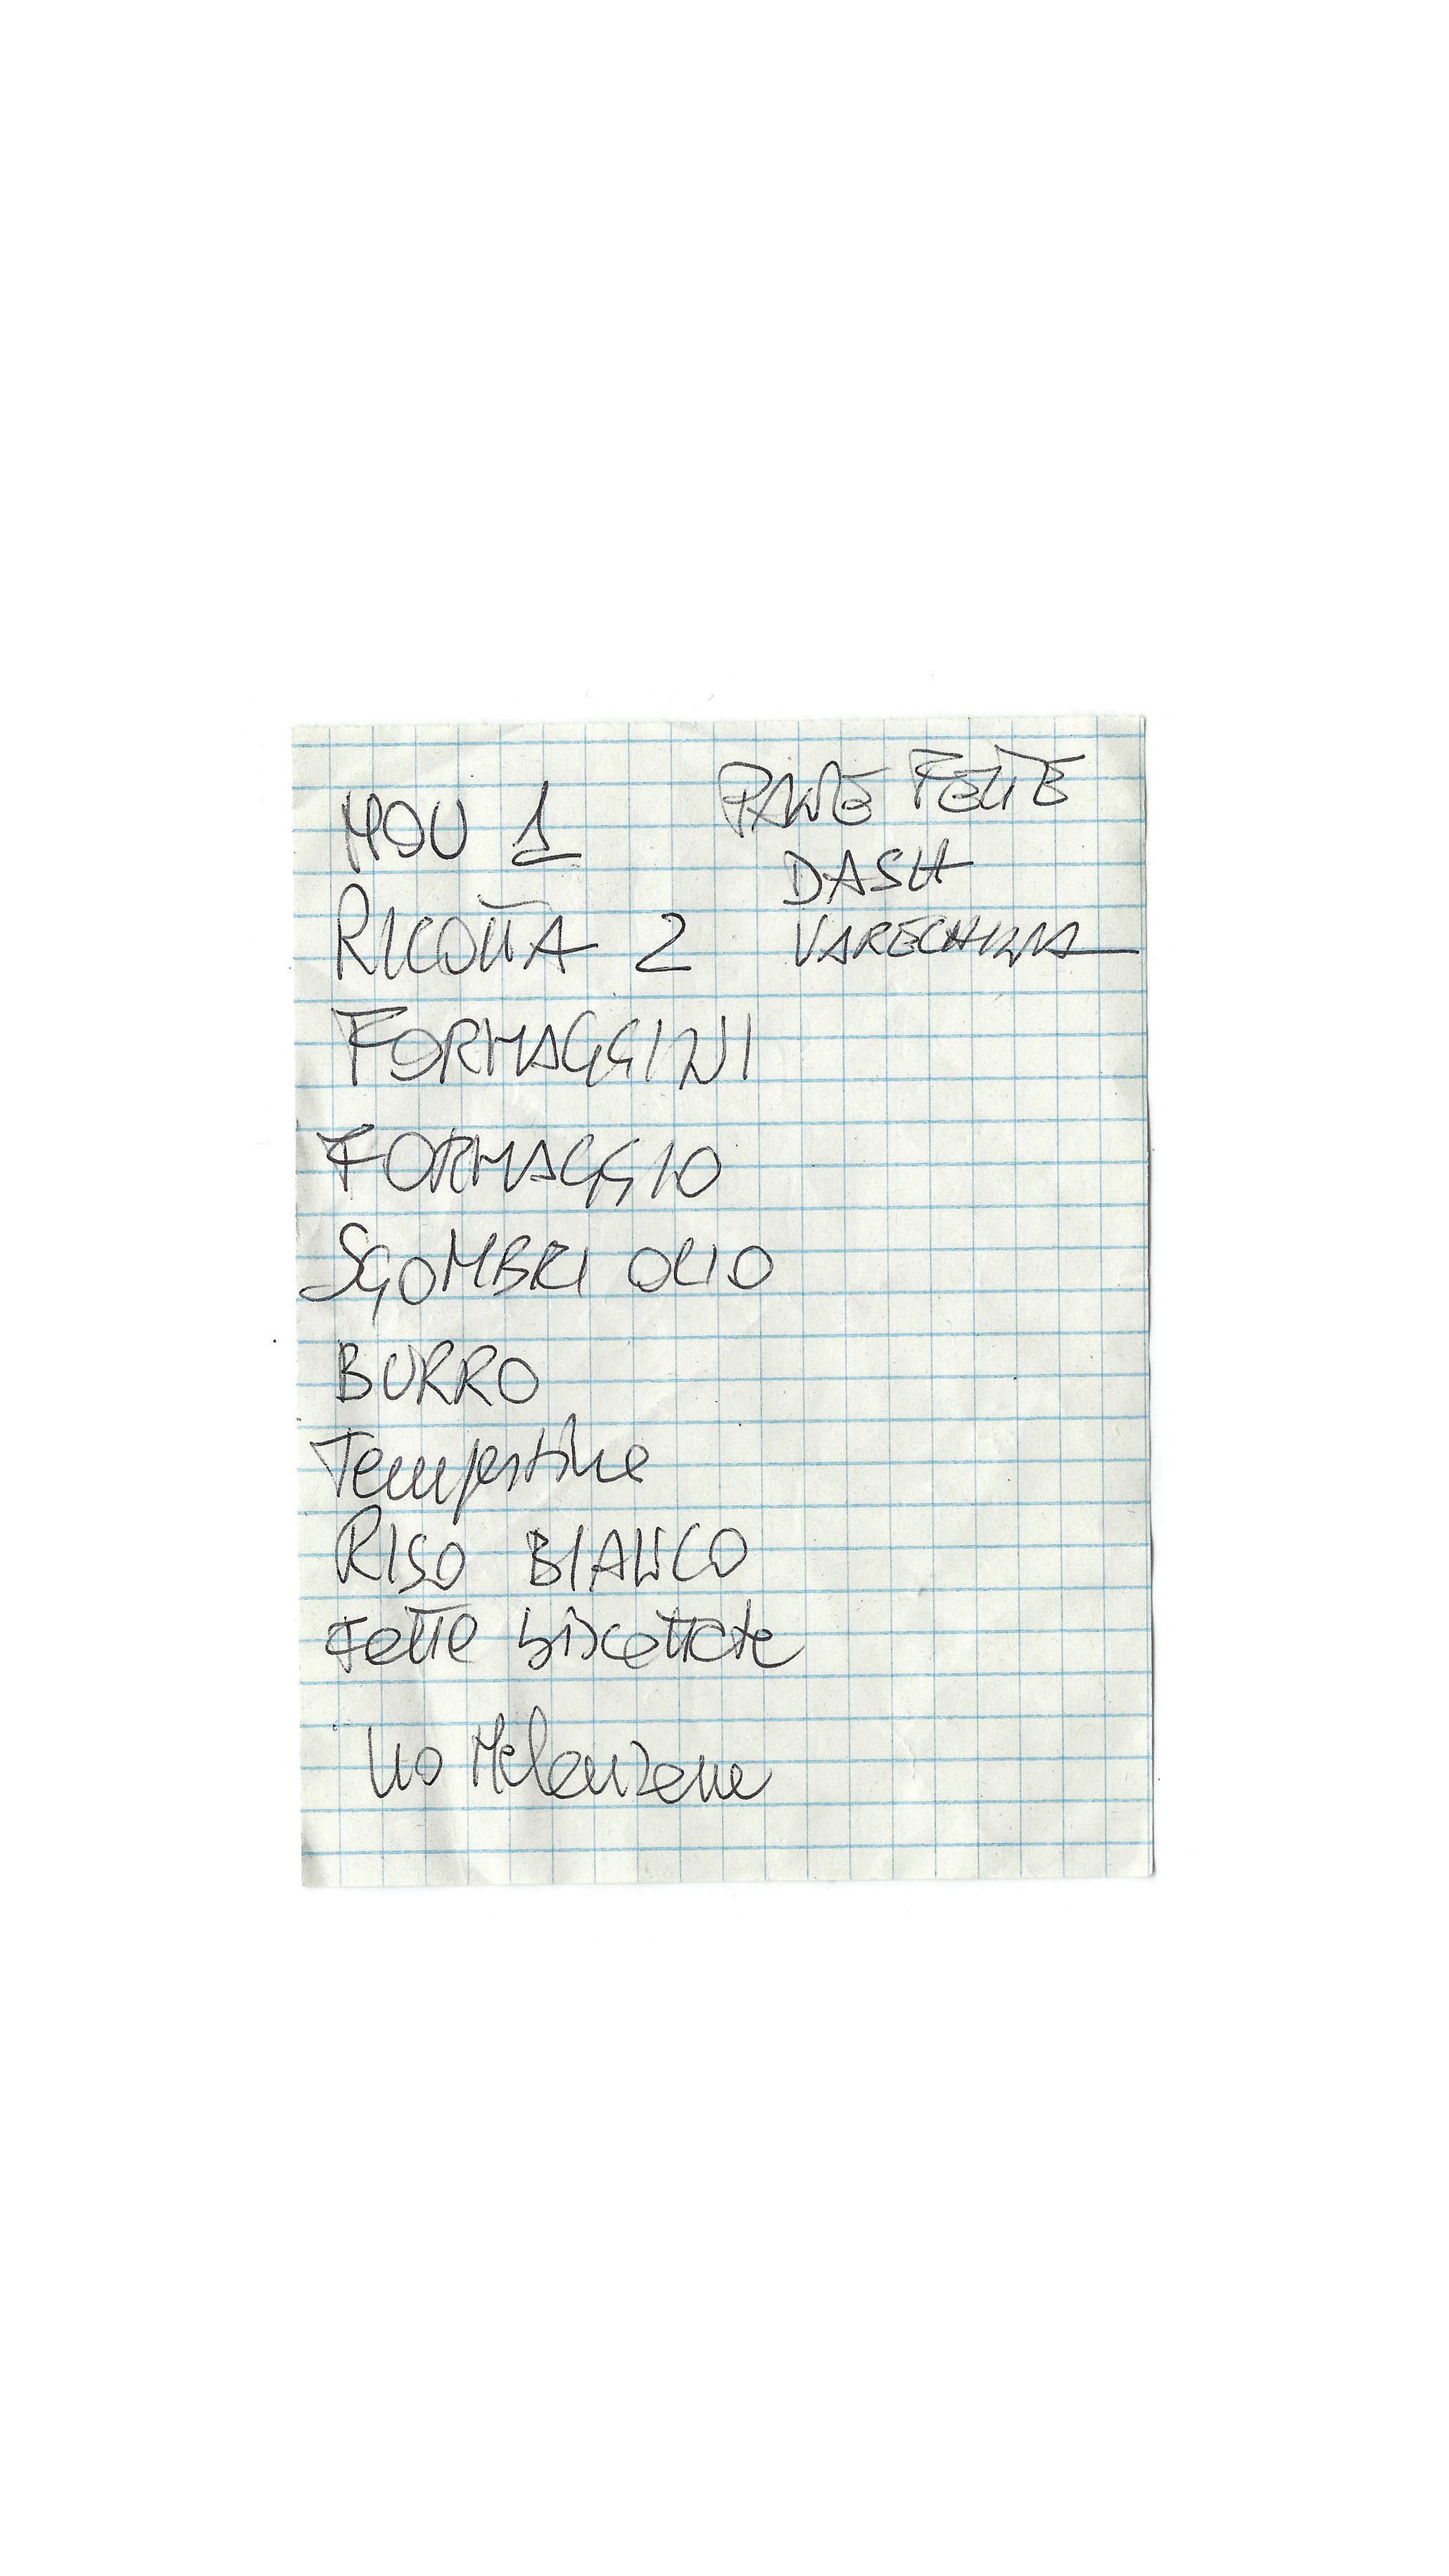 MOU 1
RICOTTA 2
FORMAGGINI
FORMAGGIO
SGOMBRI OLIO
BURRO
Tempestine
RISO BIANCO
Fette biscottate
no Melanzane
PANE FETTE
DASH
VARECHINA